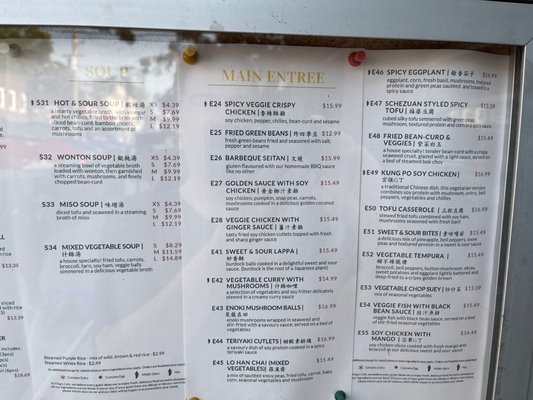 SOUP
S31 HOT & SOUR SOUP | 酸辣湯 XS $4.39
a hearty vegetable broth
S $7.69
and hot chilies, filled to the brim with
M $9.99
sliced bean-curd, bamboo shoots,
L $12.19
carrots, tofu and an assortment of
mushrooms
S32 WONTON SOUP | 餛飩湯 XS $4.39
a steaming bowl of vegetable broth
S $7.69
loaded with wonton, then garnished
M $9.99
with carrots, mushrooms, and finely
L $12.19
chopped bean-curd
S33 MISO SOUP | 味噌湯 XS $4.39
diced tofu and seaweed in a steaming
S $7.69
broth of miso
M $9.99
L $12.19
S34 MIXED VEGETABLE SOUP |
什錦湯
S $8.29
M $11.59
a house specialty: fried tofu, carrots,
L $14.89
broccoli, taro, soy ham, veggie balls,
simmered in a delicious vegetable broth
Steamed Purple Rice - mix of wild, brown & red rice • $2.99
Steamed White Rice • $2.49
MAIN ENTREE
E24 SPICY VEGGIE CRISPY $15.99
CHICKEN | 香辣酥雞
soy chicken, pepper, chilies, bean-curd and sesame
E25 FRIED GREEN BEANS | 干四季豆 $12.99
fresh green beans fried and seasoned with salt,
pepper and sesame
E26 BARBECUE SEITAN | 叉燒 $15.99
gluten flavoured with our homemade BBQ sauce
like no other
E27 GOLDEN SAUCE WITH SOY $15.49
CHICKEN | 黃金腰汁素雞
soy chicken, pumpkin, snap peas, carrots,
mushrooms cooked in a delicious golden coconut
sauce
E28 VEGGIE CHICKEN WITH $15.49
GINGER SAUCE | 薑汁素雞
tasty fried soy chicken cutlets topped with fresh
and sharp ginger sauce
E41 SWEET & SOUR LAPPA | $15.49
炒香酥
burdock balls cooked in a delightful sweet and sour
sauce. (burdock is the root of a Japanese plant)
E42 VEGETABLE CURRY WITH $14.99
MUSHROOMS | 什錦咖哩
a selection of vegetables and soy fritter delicately
stewed in a creamy curry sauce
E43 ENOKI MUSHROOM BALLS | $16.99
enoki mushrooms wrapped in seaweed and
stir-fried with a savoury sauce, served on a bed of
vegetables
E44 TERIYAKI CUTLETS | 甜酸素排燒 $16.99
a savoury dish of soy protein cooked in a spicy
teriyaki sauce
E45 LO HAN CHAI (MIXED $15.49
VEGETABLES) | 羅漢齋
a mix of sautéed snow peas, fried tofu, carrot, baby
corn, seasonal vegetables and mushroom
E46 SPICY EGGPLANT | 魚香茄子 $14.99
eggplant, corn, fresh basil, mushrooms, textured
protein and green peas sautéed and immersed in a
spicy sauce
E47 SCHEZUAN STYLED SPICY $13.39
TOFU | 麻婆豆腐
cubed silky tofu simmered with green peas,
mushroom, textured protein and corn in a spicy sauce
E48 FRIED BEAN-CURD & $15.99
VEGGIES |
a house specialty: tender bean-curd with a crispy
seaweed crust, glazed with a light sauce, served on
a bed of steamed bok choy
E49 KUNG PO SOY CHICKEN | $16.99
a traditional Chinese dish, this vegetarian version
combines soy protein with mushroom, celery, bell
peppers, vegetables and chilies
E50 TOFU CASSEROLE | 三杯豆腐 $16.99
stewed fried tofu combined with soy ham,
mushrooms seasoned with fresh basil
E51 SWEET & SOUR BITES | $15.49
a delicious mix of pineapple, bell peppers, snow
peas and textured protein in a sweet & sour sauce
E52 VEGETABLE TEMPURA | $15.49
broccoli, bell peppers, button mushroom, okra,
sweet potatoes and eggplant lightly battered and
deep-fried to a crispy golden brown
E53 VEGETABLE CHOP SUEY | 炒什菜 $13.39
mix of seasonal vegetables
E54 VEGGIE FISH WITH BLACK $15.49
BEAN SAUCE | 豉汁魚排
veggie fish with black bean sauce, served on a bed
of stir-fried vegetables
E55 SOY CHICKEN WITH $16.49
MANGO |
soy chicken slices cooked with fresh mango and
broccoli in our delicious sweet and sour sauce